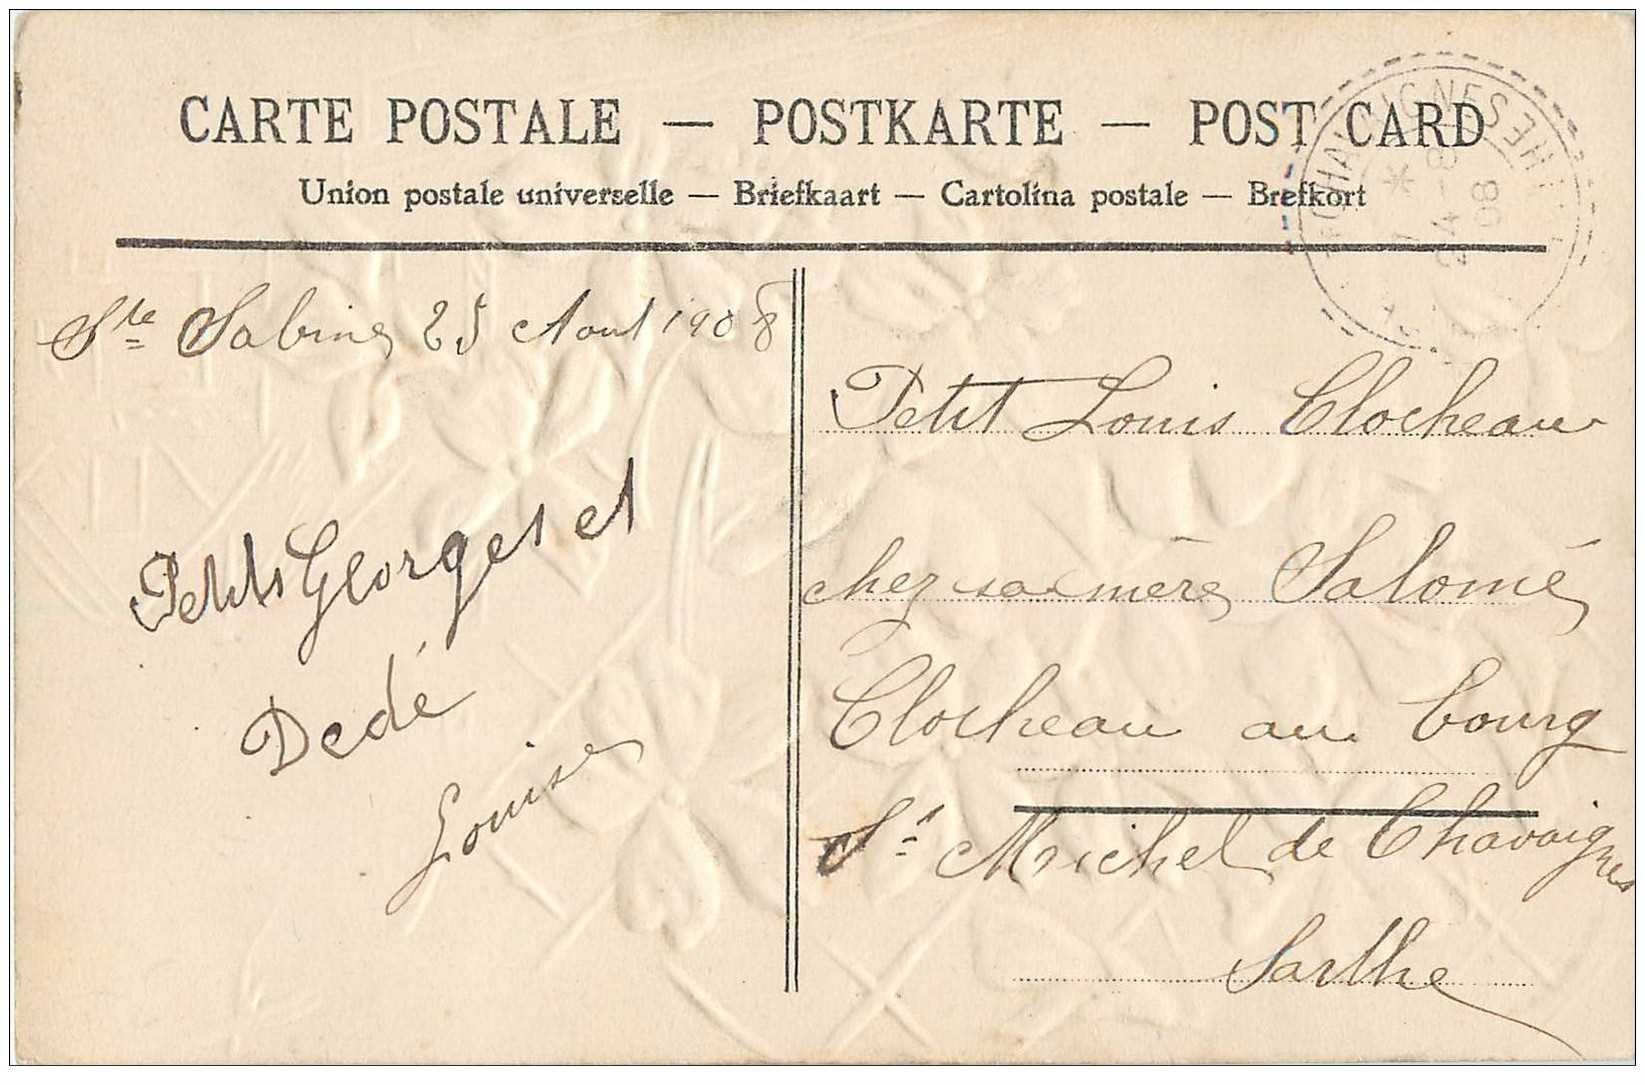 CARTE POSTALE — POSTKARTE — POST CARD
Union postale universelle — Briefkaart — Cartolina postale — Brefkort
Ste Sabine 25 Aout 1908
Petits Georges et
Dedé
Louise
Petit Louis Clocheau
chez sa mère Salomé
Clocheau au bourg
St Michel de Chavaignes
Sarthe
CHAVAIGNES
24 -8
08